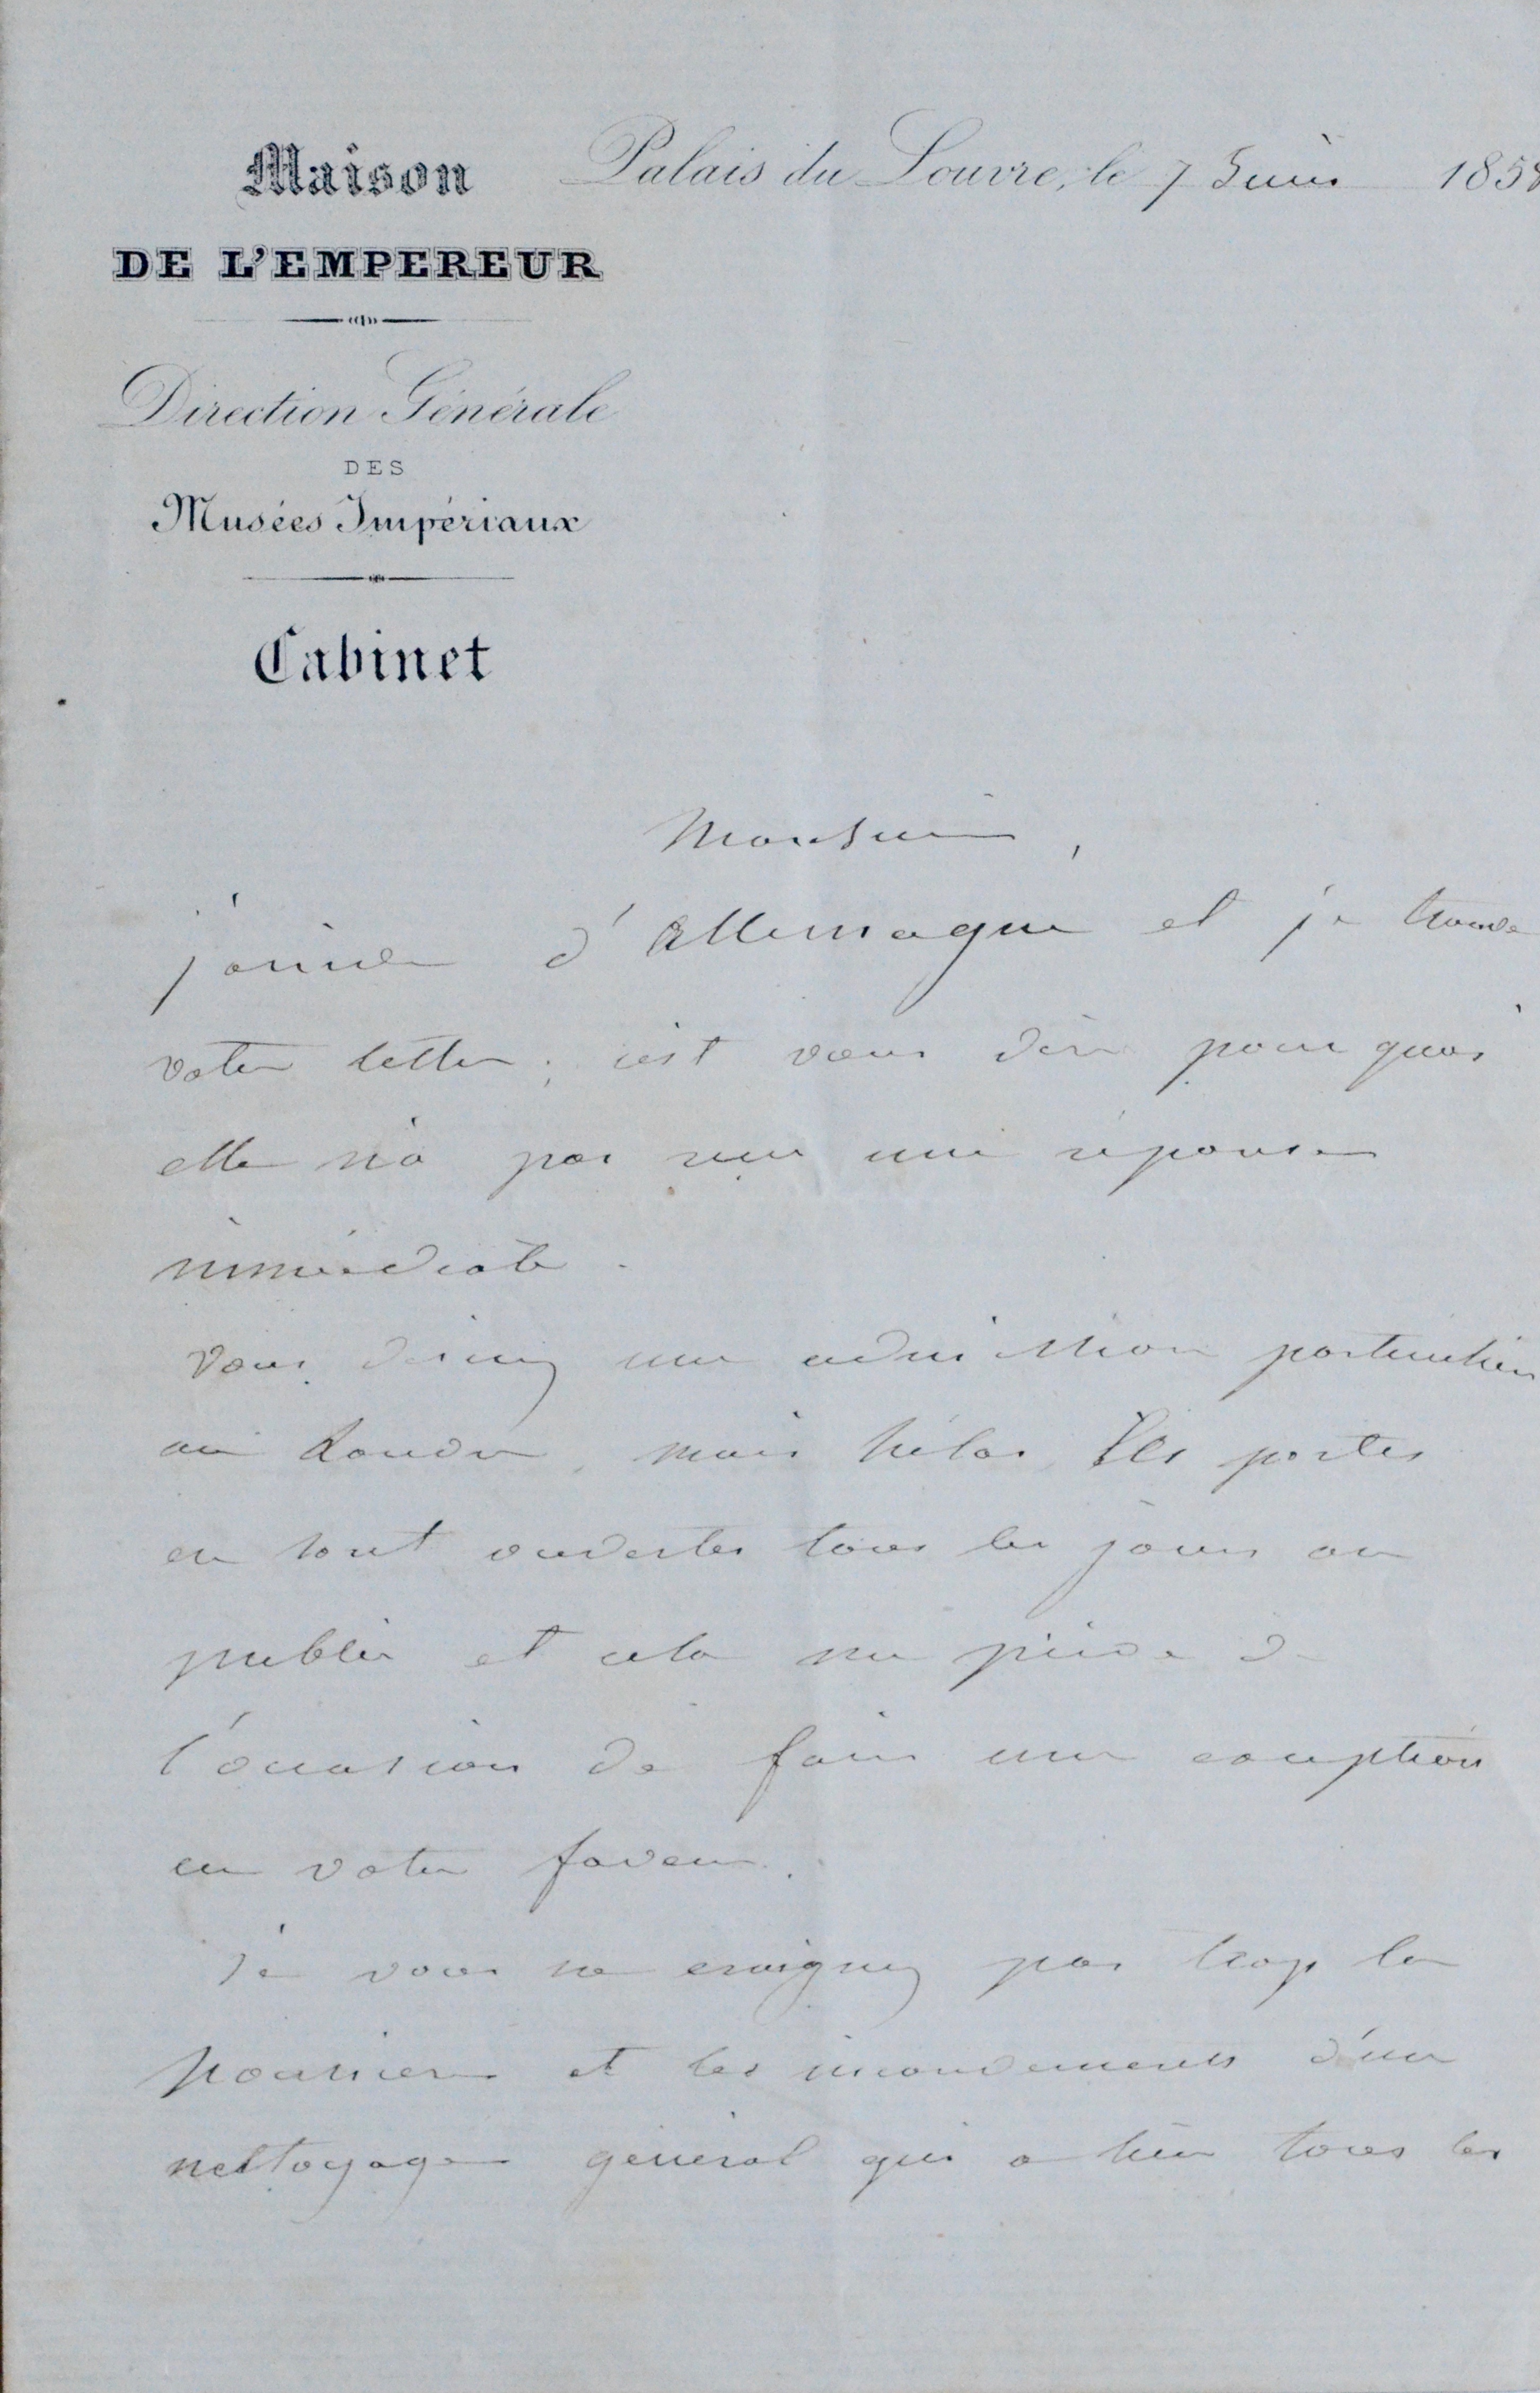 Maison
Palais du Louvre, le 7 Juin 1858
DE L'EMPEREUR
Direction Générale
DES
Musées Impériaux
Cabinet
Monsieur,
j'arrive d'Allemagne et je trouve
votre lettre ; c'est vous dire pourquoi
elle n'a pas reçu une réponse
immédiate.
Vous désirez une admission particulière
au Louvre, mais hélas les portes
en sont ouvertes tous les jours au
public et cela me prive de
l'occasion de faire une exception
en votre faveur.
Si vous ne craignez pas trop la
poussière et les inconvénients d'un
nettoyage général qui a lieu tous les